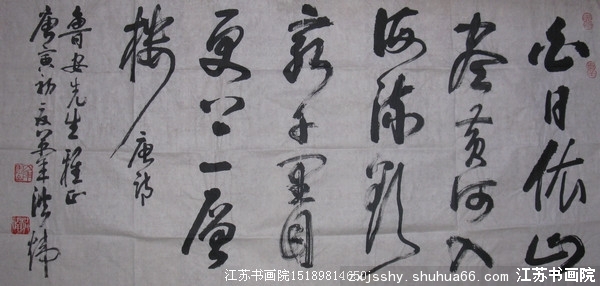 白日依山
尽黄河入
海流欲
穷千里目
更上一层
楼 唐诗
鲁安先生雅正
庚寅初夏
江苏书画院15189814650 zxjsshy.shuhua66.com 江苏书画院